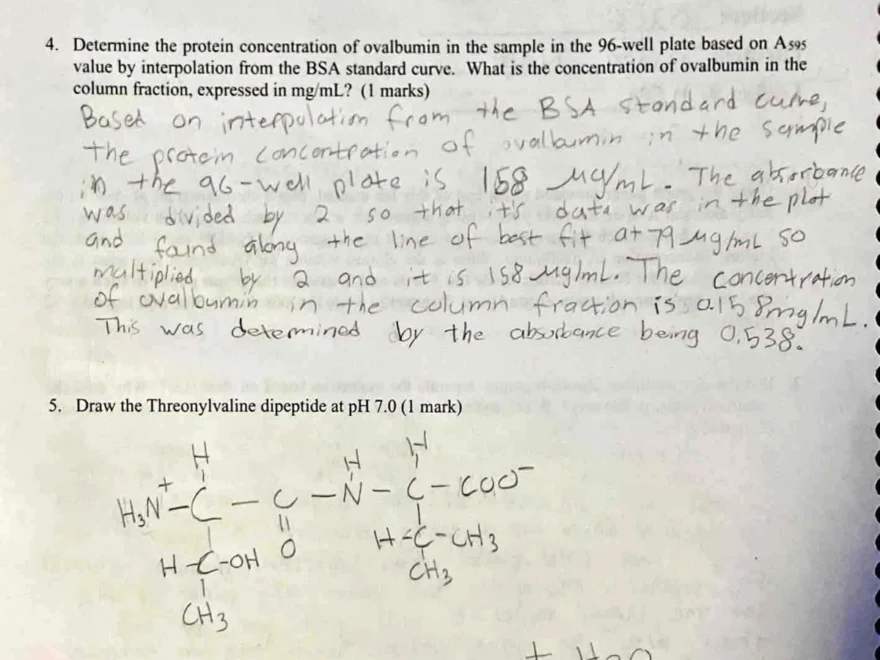 4. Determine the protein concentration of ovalbumin in the sample in the 96-well plate based on A595
value by interpolation from the BSA standard curve. What is the concentration of ovalbumin in the
column fraction, expressed in mg/mL? (1 marks)
Based on interpolation from the BSA standard curve,
the protein concentration of ovalbumin in the sample
in the 96-well plate is 158 µg/mL. The absorbance
was divided by 2 so that it's data was in the plot
and found along the line of best fit at 79 µg/mL so
multiplied by 2 and it is 158 µg/mL. The concentration
of ovalbumin in the column fraction is 0.158mg/mL.
This was determined by the absorbance being 0.538.
5. Draw the Threonylvaline dipeptide at pH 7.0 (1 mark)
H H H
H3N+ - C - C - N - C - COO-
H - C - OH O H - C - CH3
CH3 CH3
+ H2O